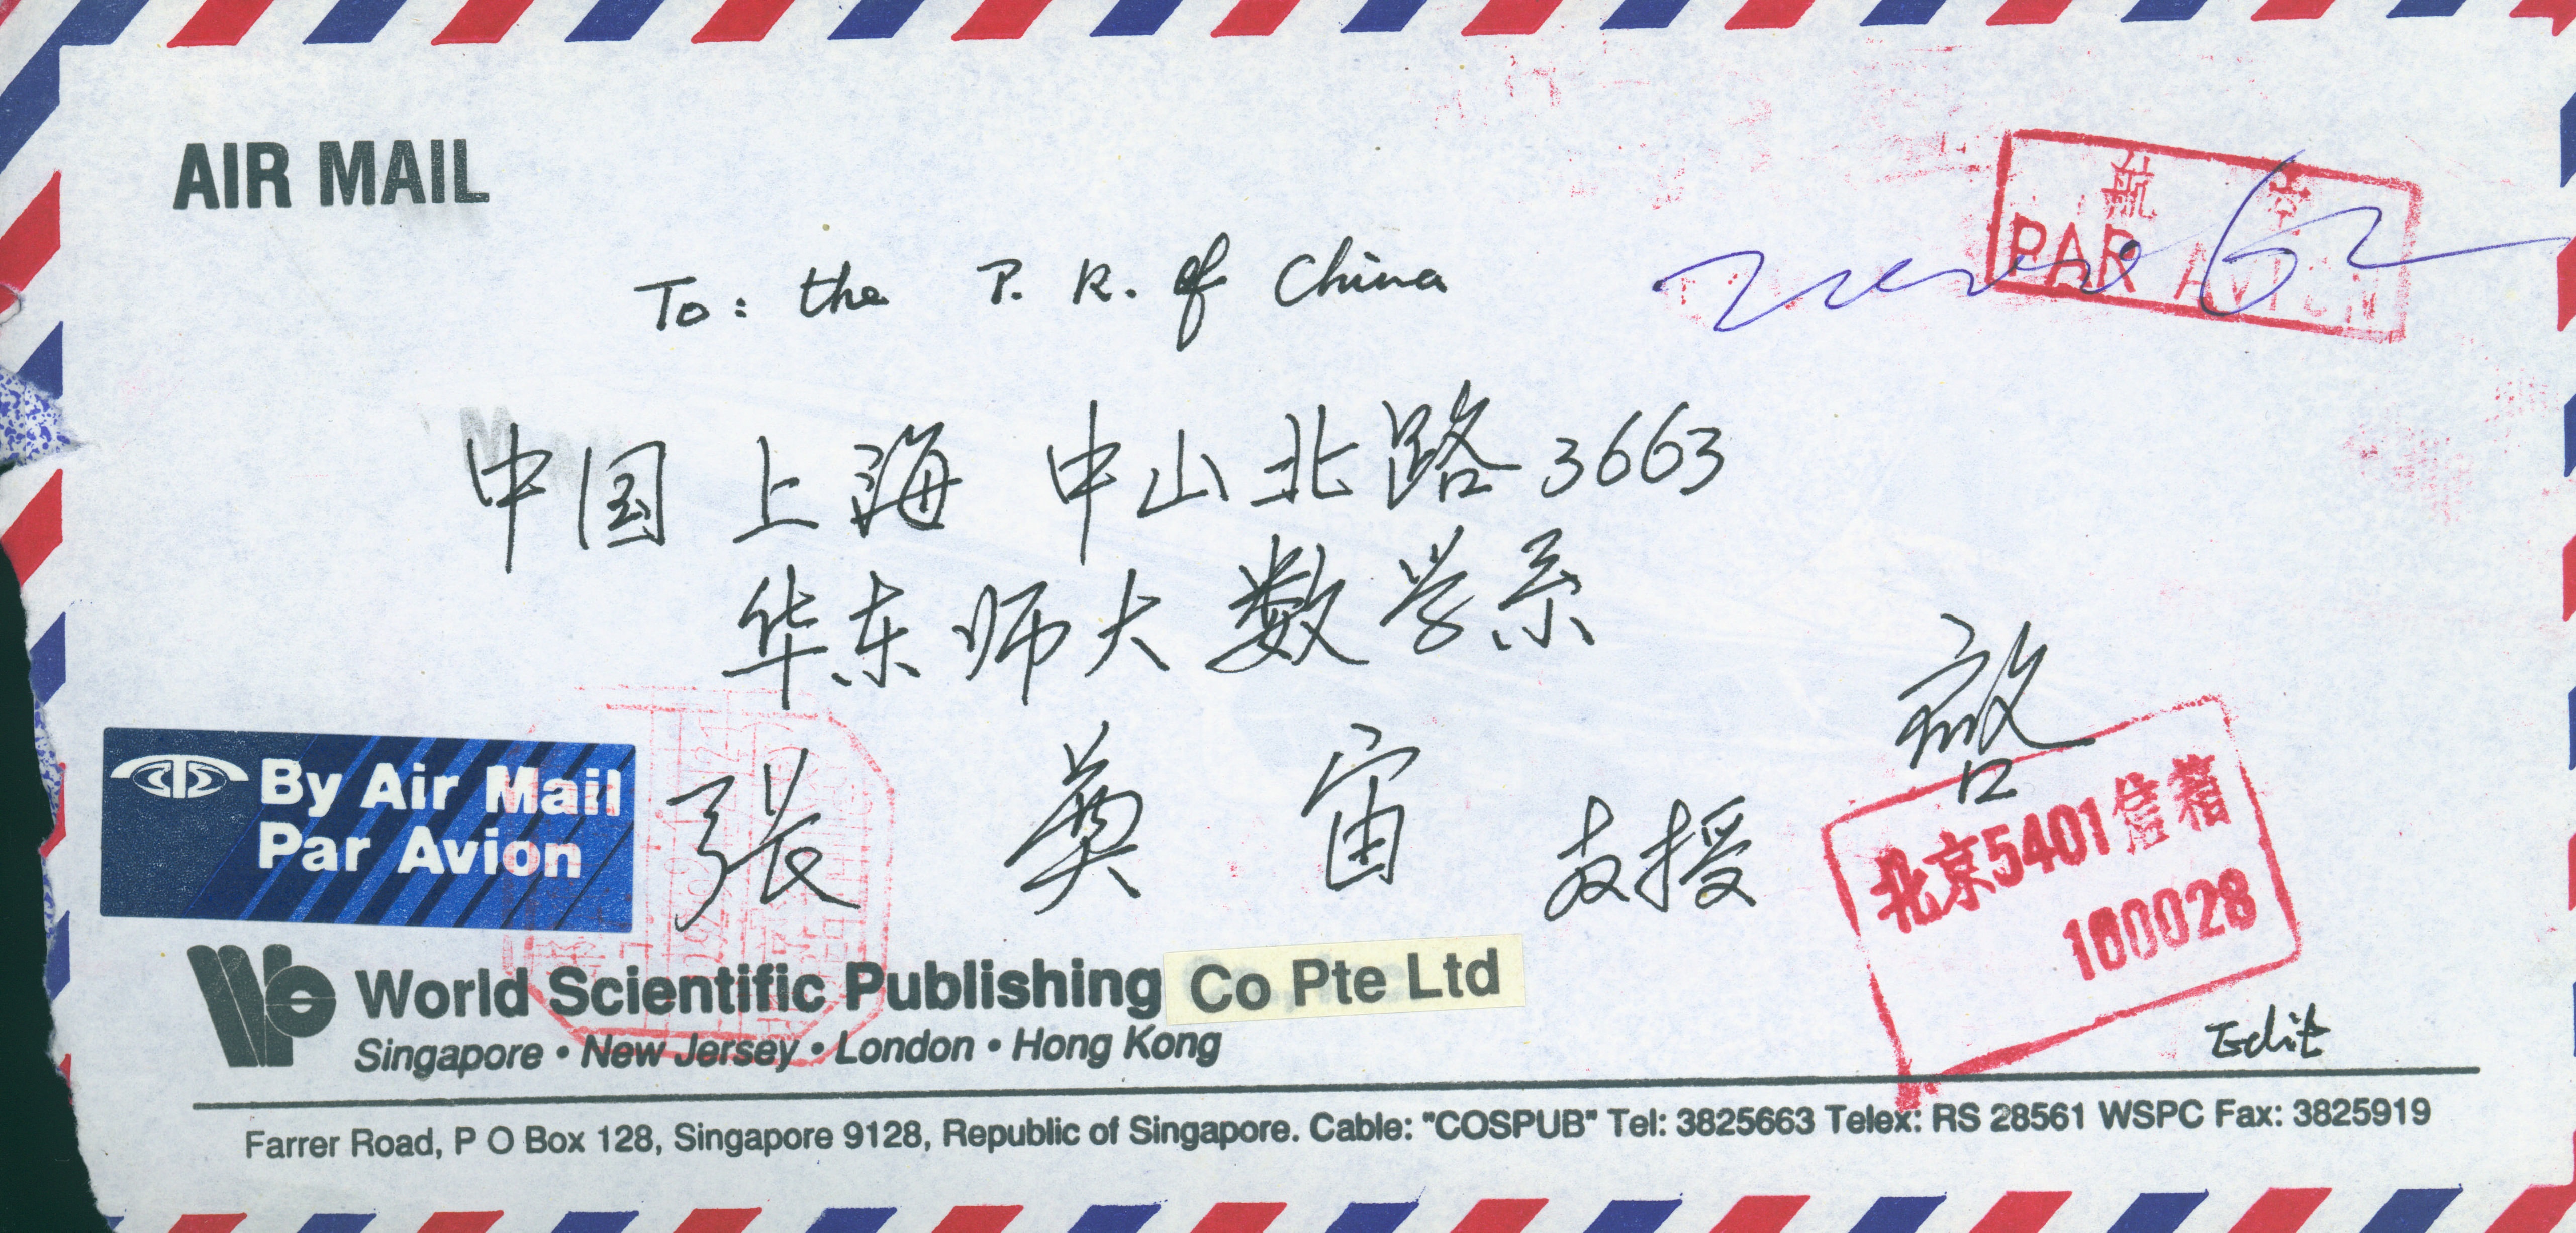 AIR MAIL
航空
PAR AVION
To: the P. R. of China
中国 上海 中山北路 3663
华东师大数学系
张奠宙 教授 啓
By Air Mail
Par Avion
北京5401信箱
100028
World Scientific Publishing Co Pte Ltd
Singapore • New Jersey • London • Hong Kong
Edit
Farrer Road, P O Box 128, Singapore 9128, Republic of Singapore. Cable: "COSPUB" Tel: 3825663 Telex: RS 28561 WSPC Fax: 3825919